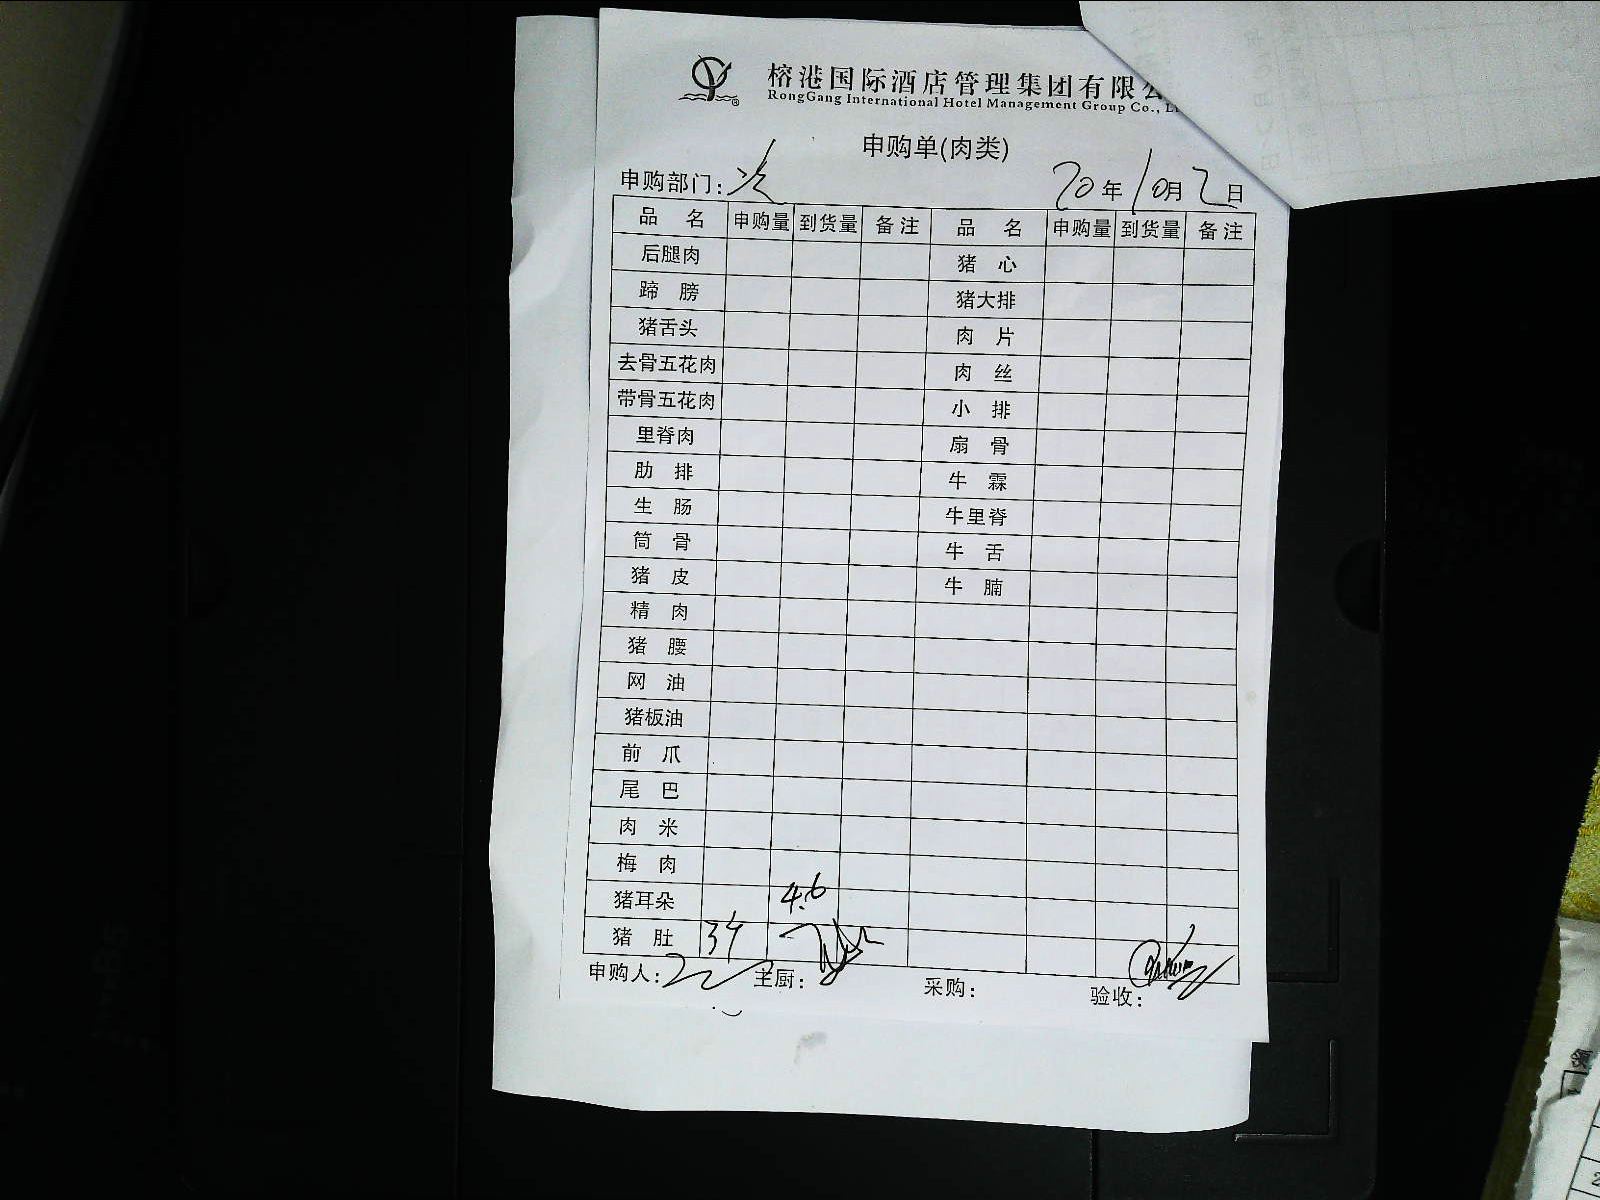 榕港国际酒店管理集团有限
RongGang International Hotel Management Group Co.,
申购单(肉类)
申购部门: 20年10月2日
品名 申购量 到货量 备注 品名 申购量 到货量 备注
后腿肉 猪心
蹄膀 猪大排
猪舌头 肉片
去骨五花肉 肉丝
带骨五花肉 小排
里脊肉 扇骨
肋排 牛霖
生肠 牛里脊
筒骨 牛舌
猪皮 牛腩
精肉
猪腰
网油
猪板油
前爪
尾巴
肉米
梅肉
猪耳朵 4.6
猪肚
申购人: 主厨: 采购: 验收: